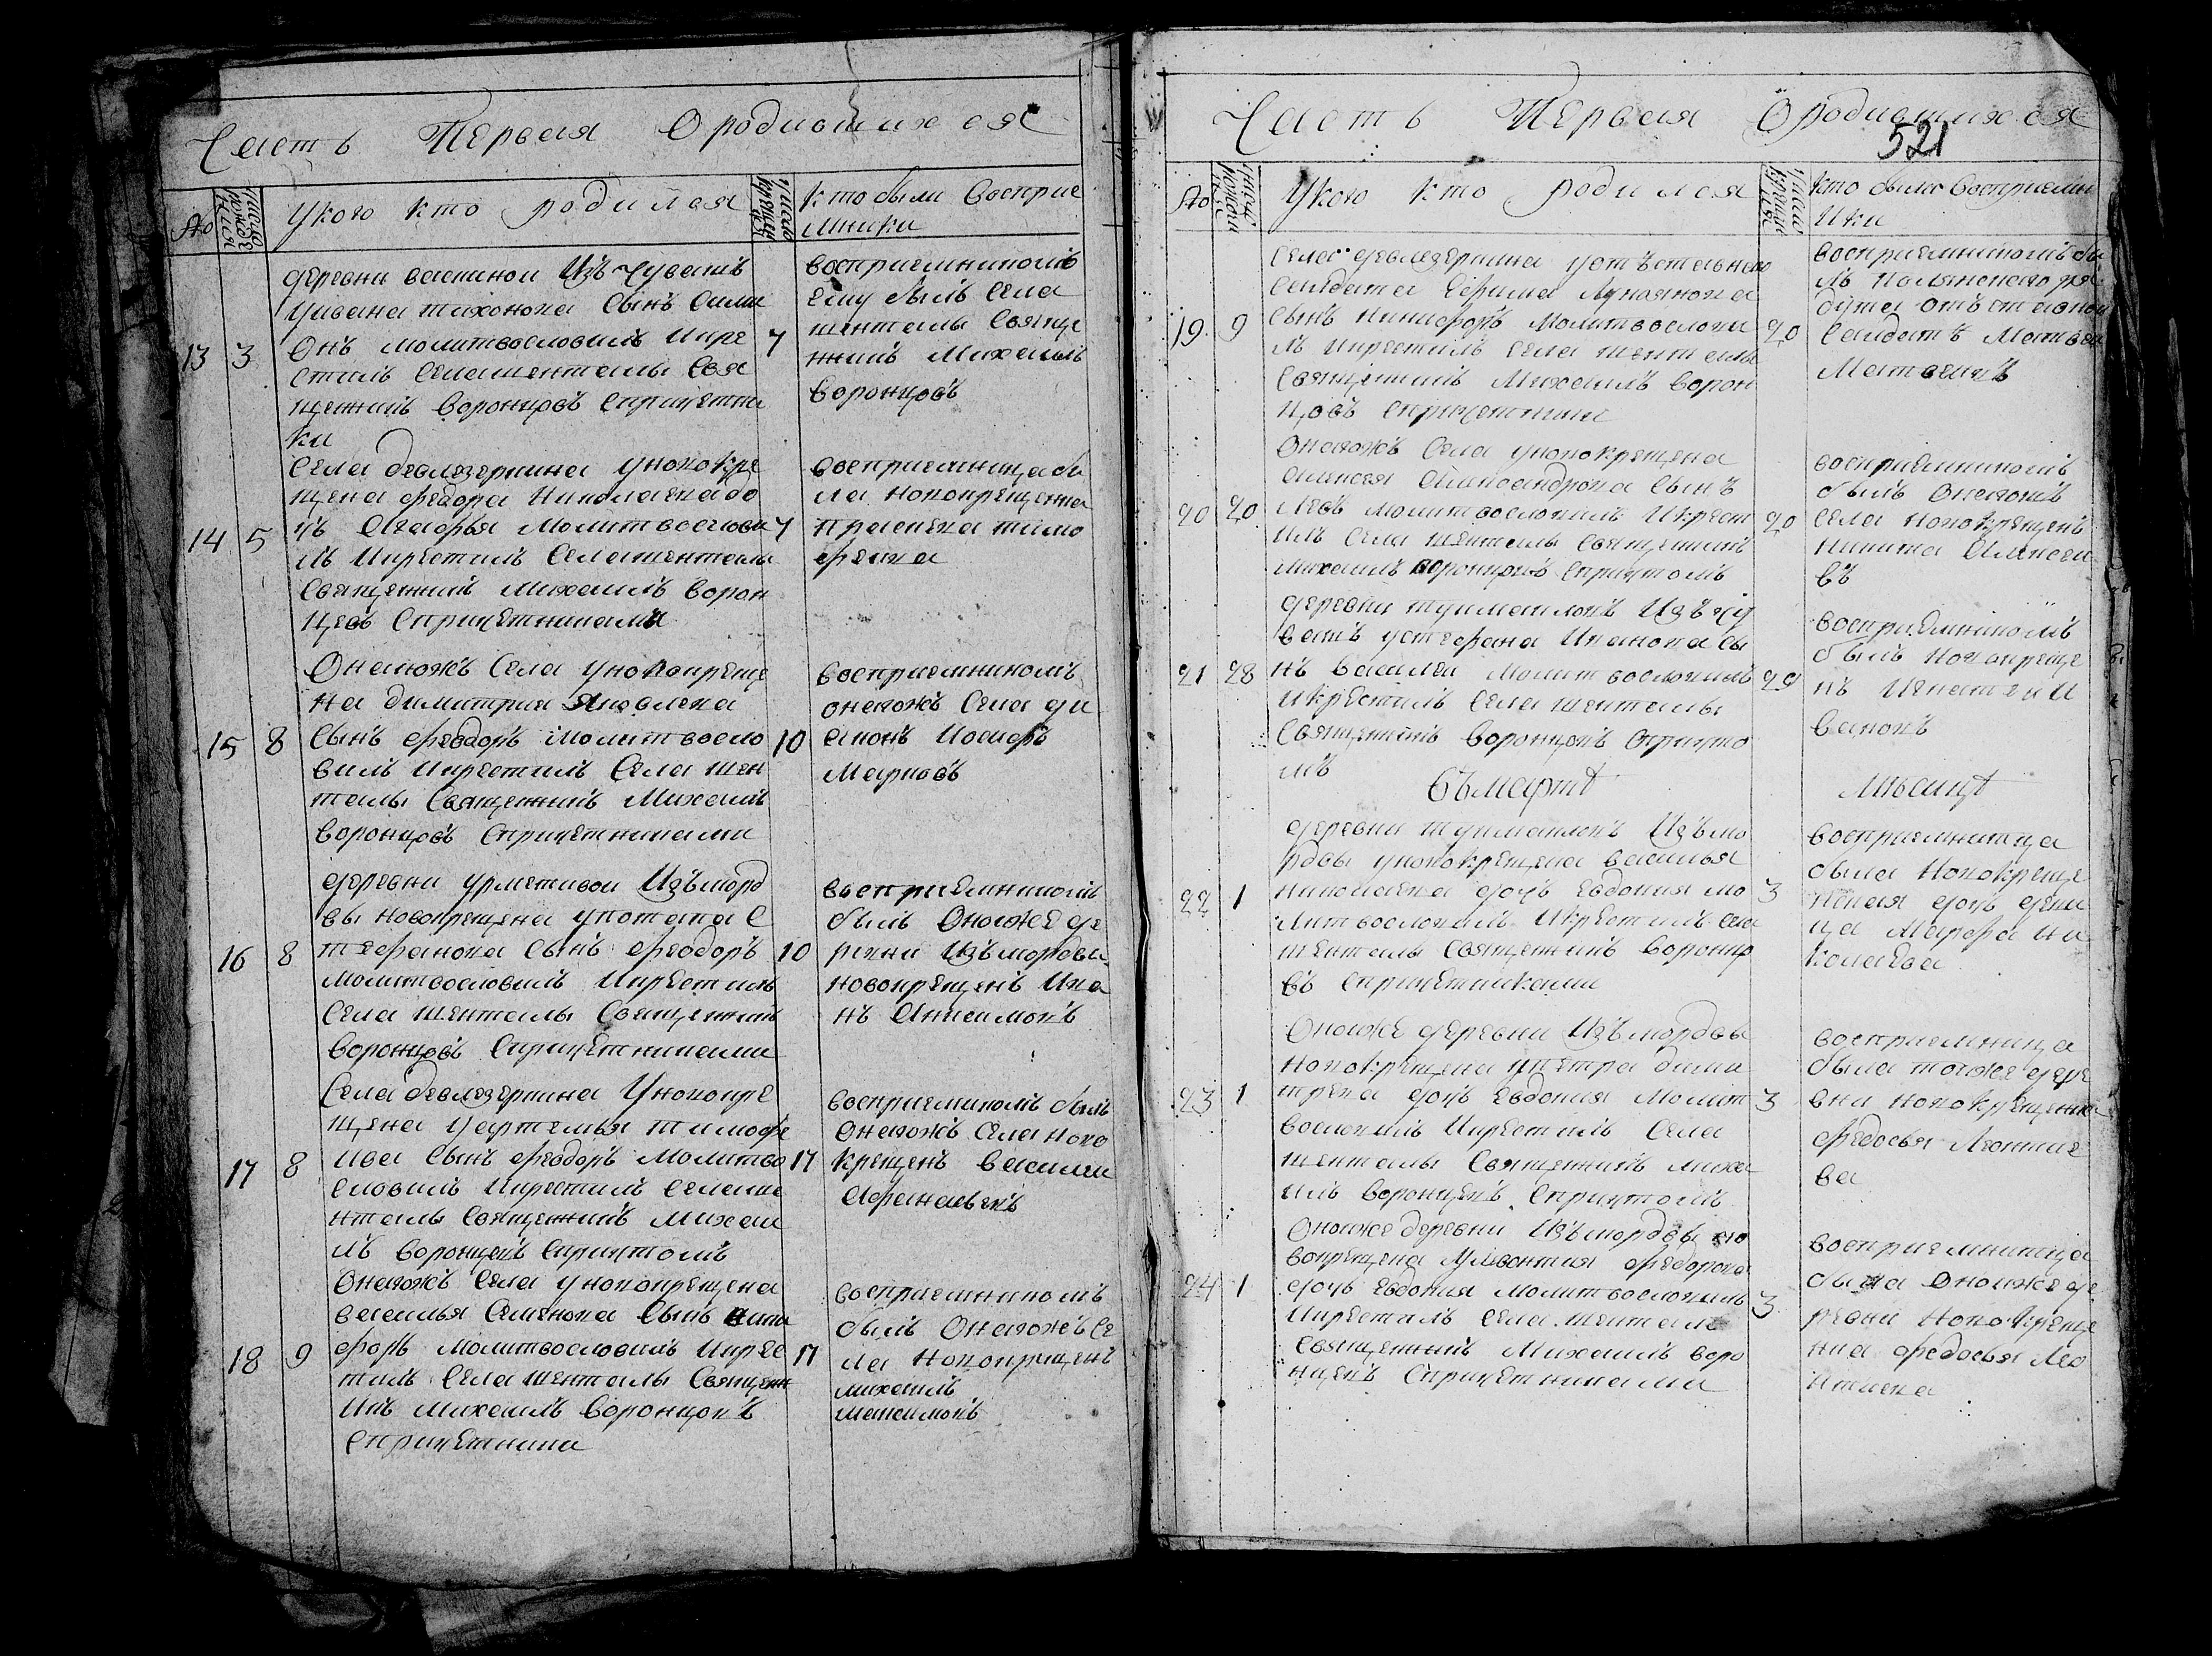 Часть Первая О родившихся
№
число рожденiя
У кого кто родился
число крещенiя
кто были восприе
мники
13 3
деревни васкиной Изъ Чувашъ
у ивана тихонова Сынъ Сими
Онъ молитвословилъ и кре
стилъ Села шенталы Свя
щенникъ Воронцовъ Спричетни
ки
7
восприемникомъ
ему былъ Села
шенталы Свяще
нникъ Михаилъ
Воронцовъ
14 5
Села девлезеркина у новокре
щена федора Николаева до
чь Агафья Молитвослови
лъ и крестилъ Села шенталы
Священникъ Михаилъ Ворон
цовъ Спричетниками
7
восприемница бы
ла новокрещенка
Прасковья тимо
феева
15 8
Онагожъ Села у новокреще
на димитрия Яковлева
Сынъ феодоръ Молитвосло
вилъ и крестилъ Села шен
талы Священникъ Михаилъ
Воронцовъ Спричетниками
10
восприемникомъ
онагожъ Села ди
аконъ Иосифъ
Марковъ
16 8
деревни урметивой Изъ морд
вы новокрещена у потапа С
тефанова Сынъ феодоръ
Молитвословилъ и крестилъ
Села шенталы Священникъ
Воронцовъ Спричетниками
10
восприемникомъ
былъ Оной же де
ревни Изъ мордвы
новокрещенъ Ива
нъ Анисимовъ
17 8
Села девлезеркина У новокре
щена у артемья тимофе
ива Сынъ феодоръ Молитво
словилъ и крестилъ Села ше
нталы Священникъ Михаи
лъ Воронцовъ Спричтомъ
17
восприемникомъ былъ
Онагожъ Села ново
крещенъ Василий
Афанасьевъ
18 9
Онагожъ Села у новокрещена
василья Семенова Сынъ ники
форъ Молитвословилъ и кре
стилъ Села шенталы Священ
никъ Михаилъ Воронцовъ
Спричетники
17
восприемникомъ
былъ Онагожъ Се
ла Новокрещенъ
Михаилъ
Максимовъ
Часть Первая О родившихся
521
№
число рожденiя
У кого кто родился
число крещенiя
кто были восприемн
ики
19 9
Села девлезеркина у отъставнаго
Салдата Ефима Лукоянова
Сынъ Никифоръ Молитвослови
лъ и крестилъ Села шенталы
Священникъ Михаилъ Ворон
цовъ Спричетники
20
восприемникомъ бы
лъ
отъставной
Салдатъ Матвей
Матвеевъ
20 20
Онагожъ Села у новокрещена
алексея Александрова Сынъ
Левъ Молитвословилъ и крест
илъ Села шенталы Священникъ
Михаилъ Воронцовъ Спричтомъ
20
восприемникомъ
былъ Онагожъ
Села новокрещенъ
Никита Алексеи
въ
21 28
деревни туйметкиной Изъ чу
вашъ у стефана Иванова Сы
нъ Василей Молитвословилъ
и крестилъ Села шенталы
Священникъ Воронцовъ Спричто
мъ
29
восприемникомъ
былъ новокреще
нъ Игнатей И
вановъ
Въ мартѣ мѣсяцѣ
22 1
деревни туйметкиной Изъ мо
рдвы у новокрещена василья
николаева дочь Евдокия мо
литвословилъ и крестилъ села
шенталы Священникъ Воронцо
въ Спричетниками
3
восприемница
была Новокреще
нская дочь деви
ца Марфа Ни
колаева
23 1
Оной же деревни Изъ мордвы
новокрещена у петра дими
триева дочь Евдокия Молит
вословилъ и крестилъ Села
шенталы Священникъ Миха
илъ Воронцовъ Спричтомъ
3
восприемница
была тойже дере
вни новокрещенка
федосья Леонтие
ва
24 1
Оной же деревни Изъ мордвы но
вокрещена у леонтия федорова
дочь Евдокия молитвословилъ
и крестилъ Села шенталы
Священникъ Михаилъ Воро
нцовъ Спричетниками
3
восприемница
была Оной же де
ревни Новокреще
нка федосья Лео
нтиева